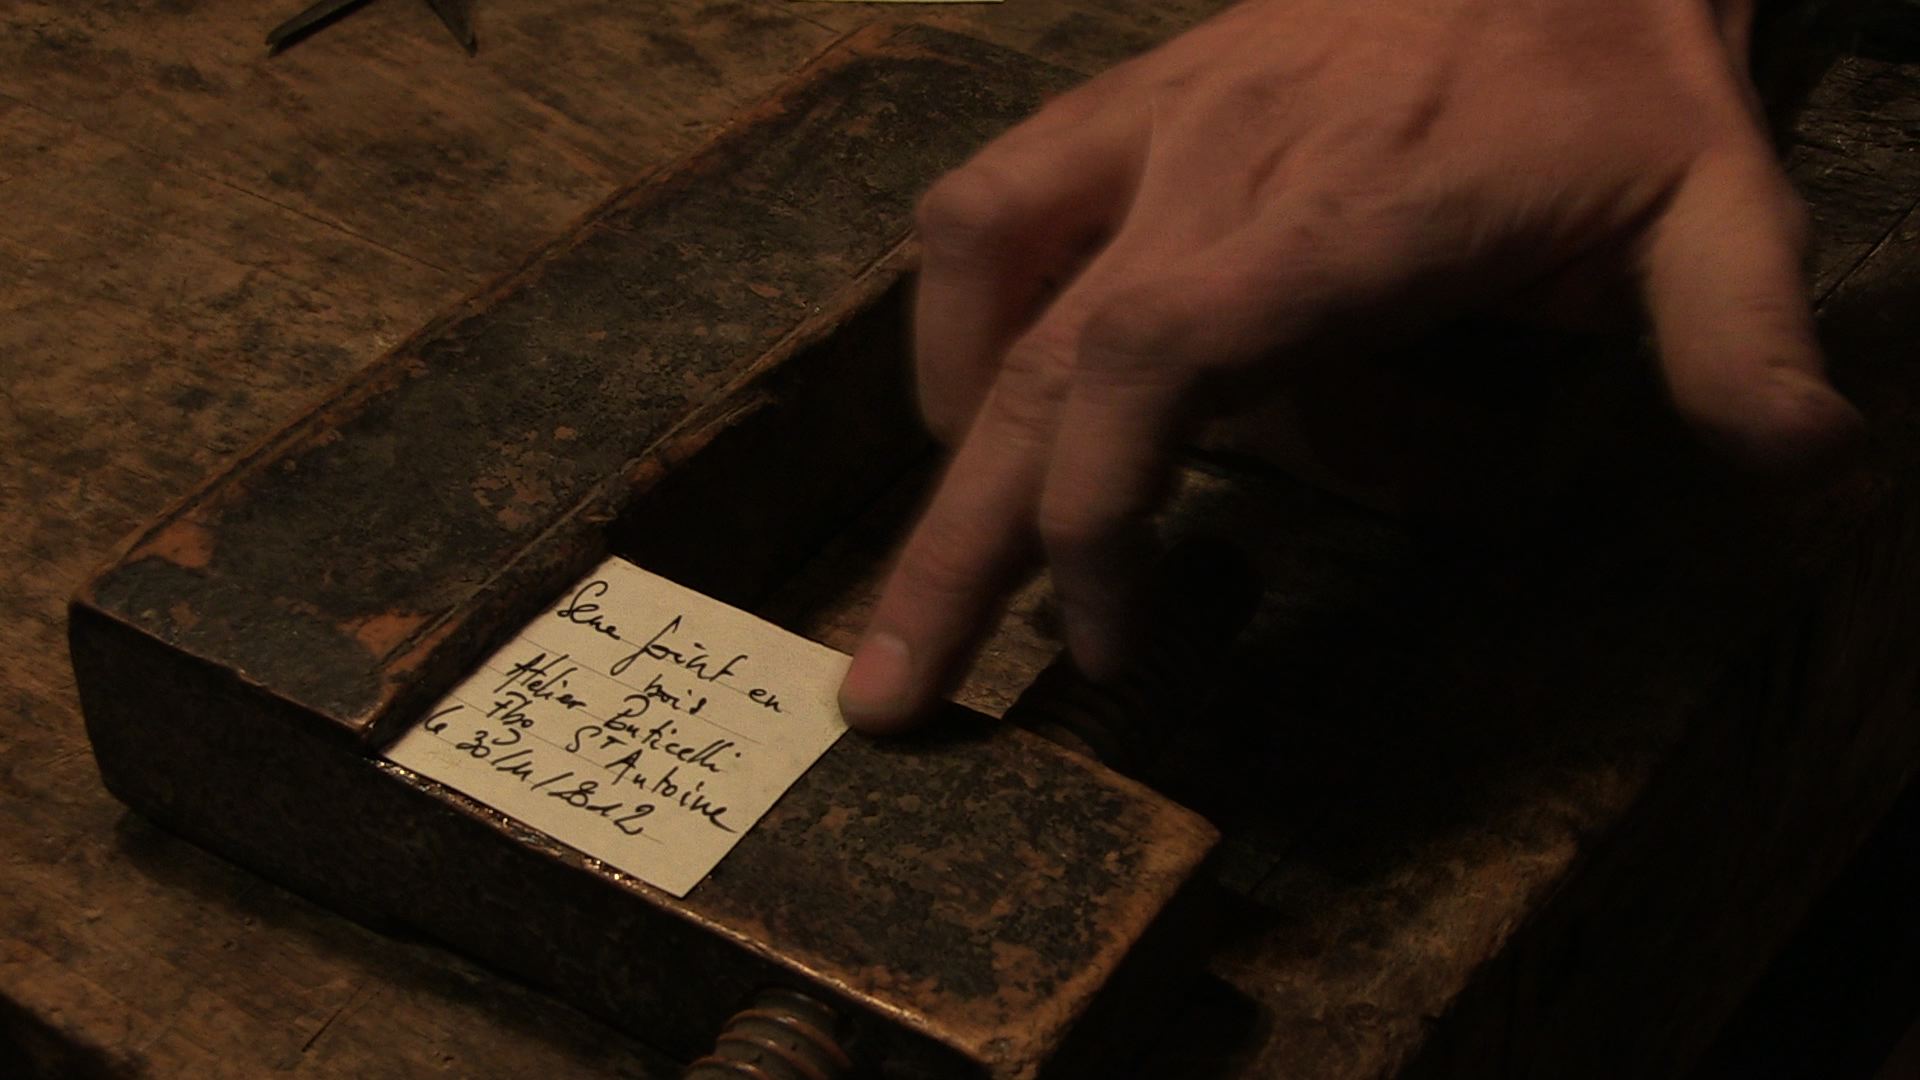 Serre joint en
bois
Atelier Buticelli
Fbg ST Antoine
le 30/11/2012